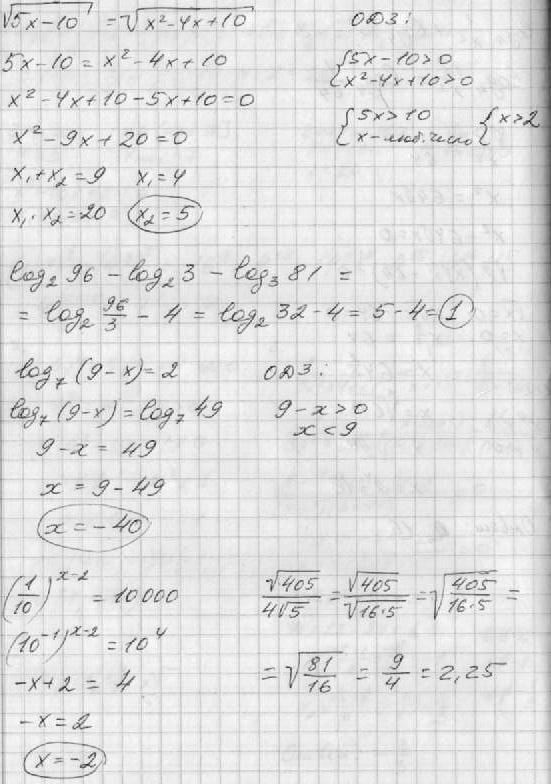 √(5x-10) = √(x²-4x+10)
ОДЗ:
5x-10 = x²-4x+10
{5x-10>0
x²-4x+10>0
x²-4x+10-5x+10=0
{5x>10
x-люб.число
{x>2
x²-9x+20=0
x₁+x₂=9 x₁=4
x₁·x₂=20 x₂=5
log₂96 - log₂3 - log₃81 =
= log₂ 96/3 - 4 = log₂32-4 = 5-4 = 1
log₇(9-x)=2
log₇(9-x)=log₇49
9-x = 49
x = 9-49
x = -40
ОДЗ:
9-x>0
x<9
(1/10)^(x-2) = 10000
(10⁻¹)^(x-2) = 10⁴
-x+2 = 4
-x=2
x=-2
√405/4√5 = √405/√(16·5) = √(405/(16·5)) =
= √(81/16) = 9/4 = 2,25